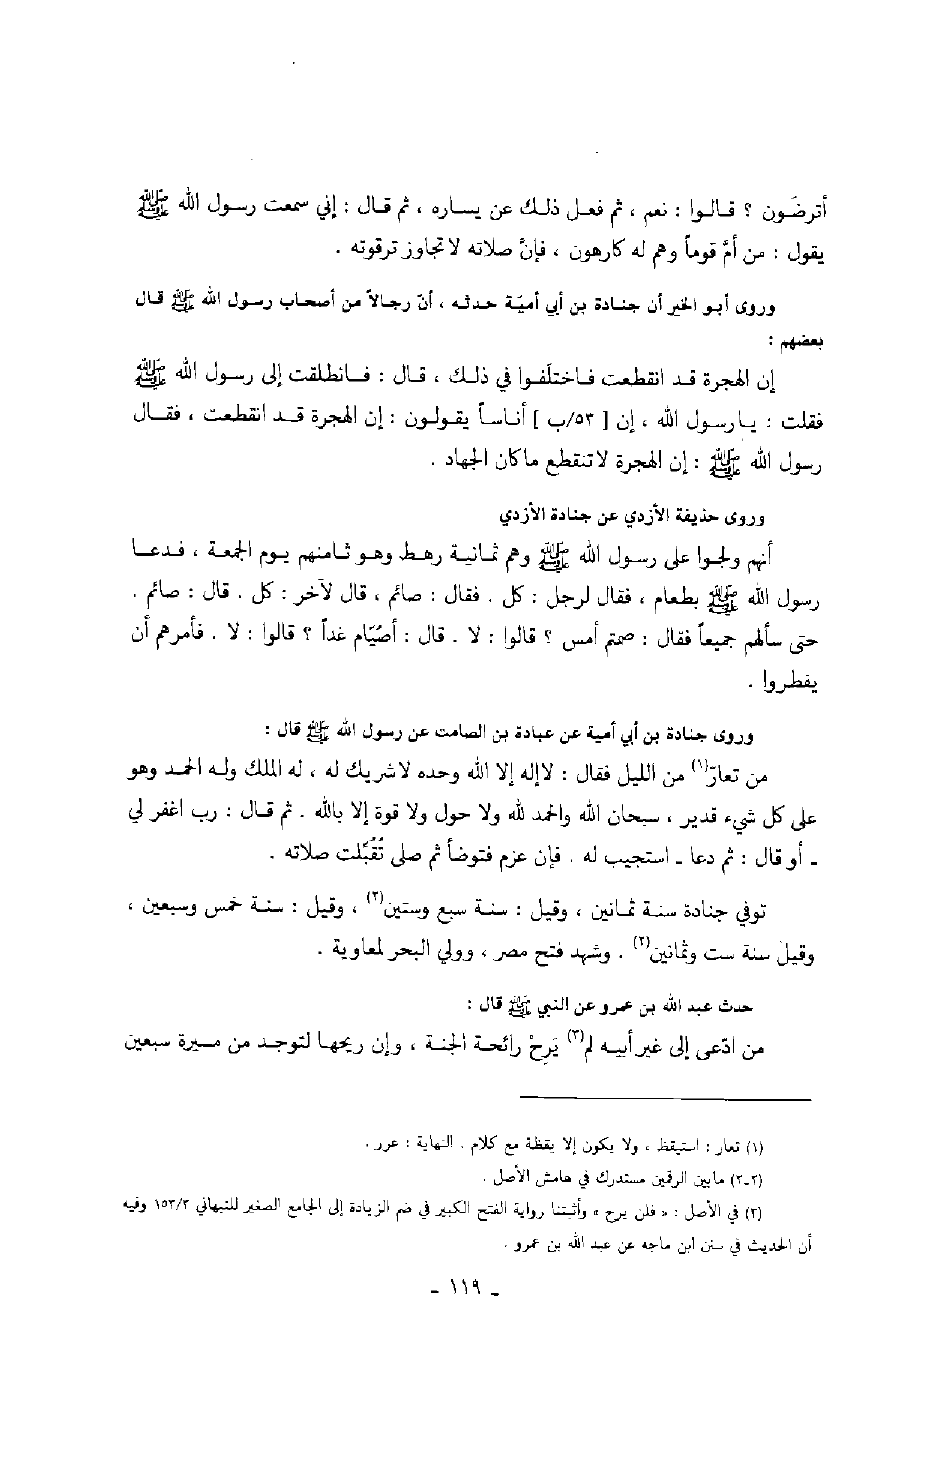 أترضَون ؟ قالوا : نعم ، ثم فعل ذلك عن يساره ، ثم قال : إني سمعت رسول الله ﷺ
يقول : من أمَّ قوماً وهم له كارهون ، فإنَّ صلاته لا تجاوز ترقوته .
وروى أبو الخير أن جنادة بن أبي أميّة حدثه ، أنّ رجالاً من أصحاب رسول الله ﷺ قال
بعضهم :
إن الهجرة قد انقطعت فاختلَفوا في ذلك ، قال : فانطلقت إلى رسول الله ﷺ
فقلت : يا رسول الله ، إن [ ٥٣/ب ] أناساً يقولون : إن الهجرة قد انقطعت ، فقال
رسول الله ﷺ : إن الهجرة لا تنقطع ماكان الجهاد .
وروى حذيفة الأزدي عن جنادة الأزدي
أنهم ولجوا على رسول الله ﷺ وهم ثمانية رهط وهو ثامنهم يوم الجمعة ، فدعا
رسول الله ﷺ بطعام ، فقال لرجل : كل . فقال : صائم ، قال لآخر : كل . قال : صائم .
حتى سألهم جميعاً فقال : صمتم أمس ؟ قالوا : لا . قال : أصُيّام غداً ؟ قالوا : لا . فأمرهم أن
يفطروا .
وروى جنادة بن أبي أمية عن عبادة بن الصامت عن رسول الله ﷺ قال :
من تعارّ(١) من الليل فقال : لاإله إلا الله وحده لا شريك له ، له الملك وله الحمد وهو
على كل شيء قدير ، سبحان الله والحمد لله ولا حول ولا قوة إلا بالله . ثم قال : رب اغفر لي
ـ أو قال : ثم دعا ـ استجيب له . فإن عزم فتوضأ ثم صلى تُقُبّلت صلاته .
توفي جنادة سنة ثمانين ، وقيل : سنة سبع وستين(٢) ، وقيل : سنة خمس وسبعين ،
وقيل سنة ست وثمانين(٢) . وشهد فتح مصر ، وولي البحر لمعاوية .
حدث عبد الله بن عمرو عن النبي ﷺ قال :
من ادّعى إلى غير أبيه لم(٣) يَرِحْ رائحة الجنة ، وإن ريحها لتوجد من مسيرة سبعين
(١) تعار : استيقظ ، ولا يكون إلا يقظة مع كلام . النهاية : عرر .
(٢-٢) مابين الرقمين مستدرك في هامش الأصل .
(٣) في الأصل : « فلن يرح » وأثبتنا رواية الفتح الكبير في ضم الزيادة إلى الجامع الصغير للنبهاني ١٥٣/٣ وفيه
أن الحديث في سنن ابن ماجه عن عبد الله بن عمرو .
ـ ١١٩ ـ